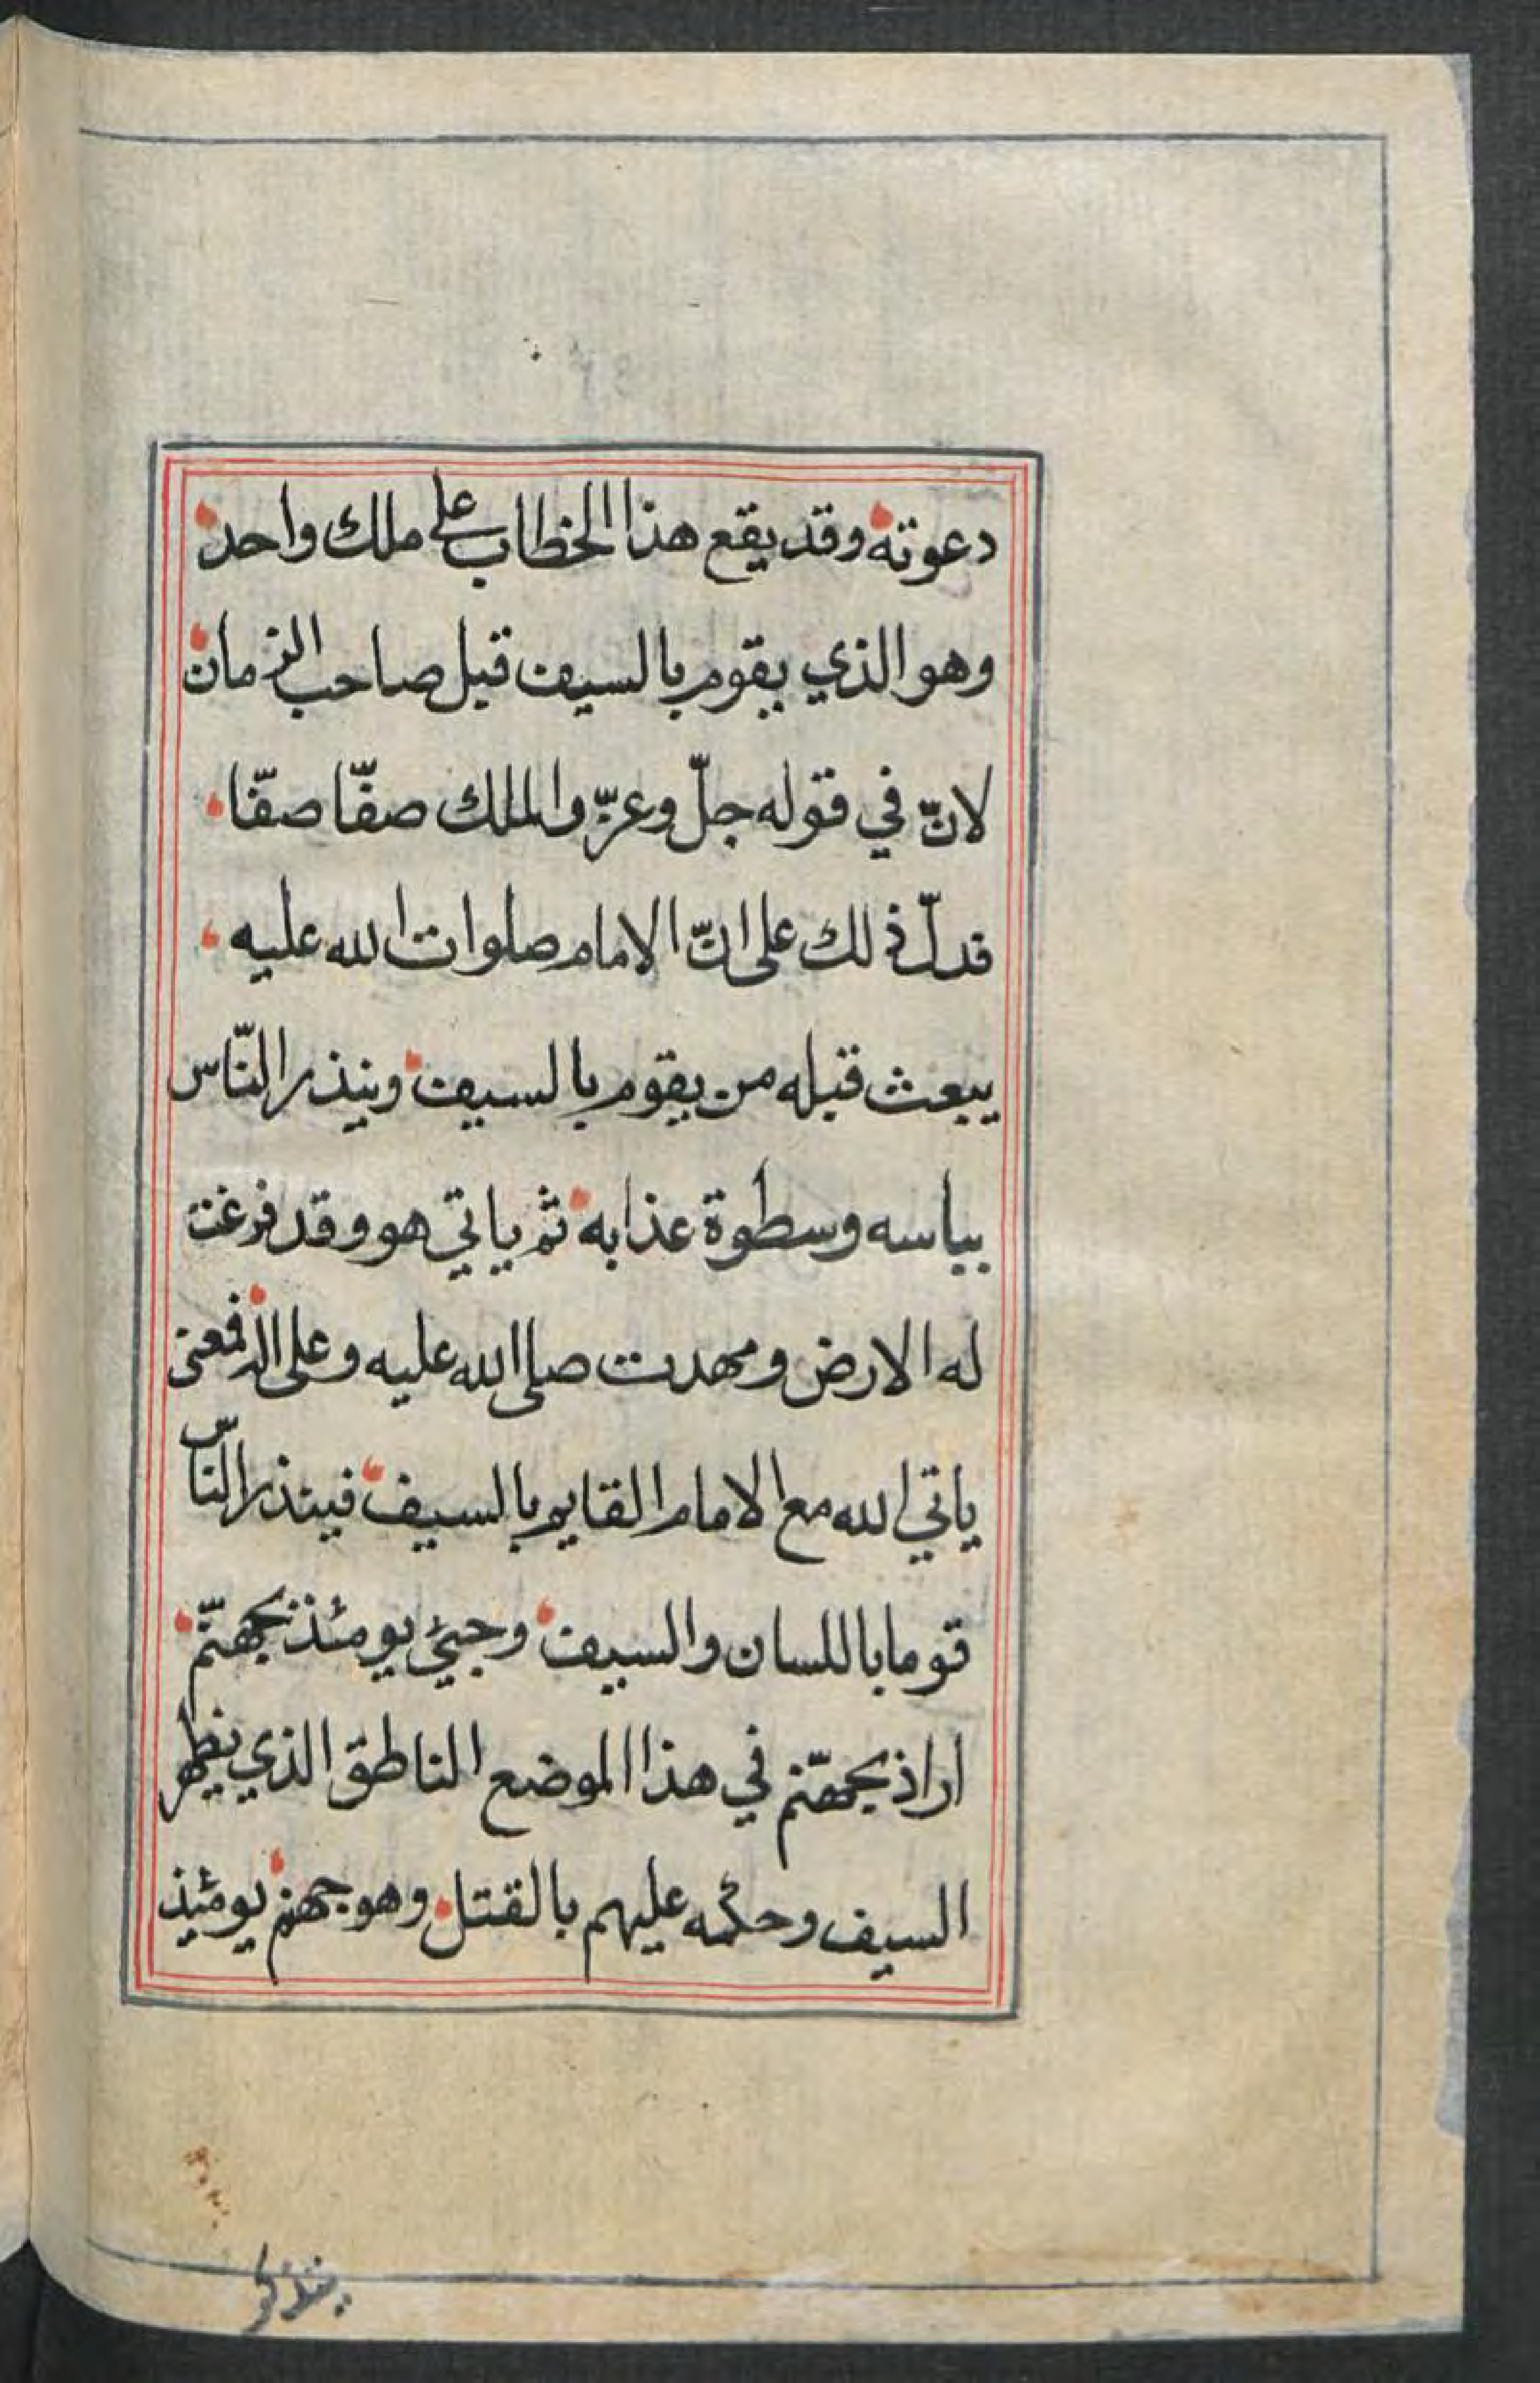 دعوته وقد يقع هذا الخطاب على ملك واحد
وهو الذي يقوم بالسيف قبل صاحب الزمان
لانّ في قوله جلّ وعزّ والملك صفّا صفّا
فدلّ ذلك على انّ الامام صلوات الله عليه
يبعث قبله من يقوم بالسيف وينذر النّاس
بباسه وسطوة عذابه ثم ياتي هو وقد فرغت
له الارض ومهدت صلى الله عليه وعلى اله فمعنى
ياتي الله مع الامام القايم بالسيف فينذر النّاس
قوما باللسان والسيف وجيئ يومئذ بجهنّم
اراد بجهنّم في هذا الموضع الناطق الذي يظهر
السيف وحكمه عليهم بالقتل وهو جهنم يومئذ
يتذكر